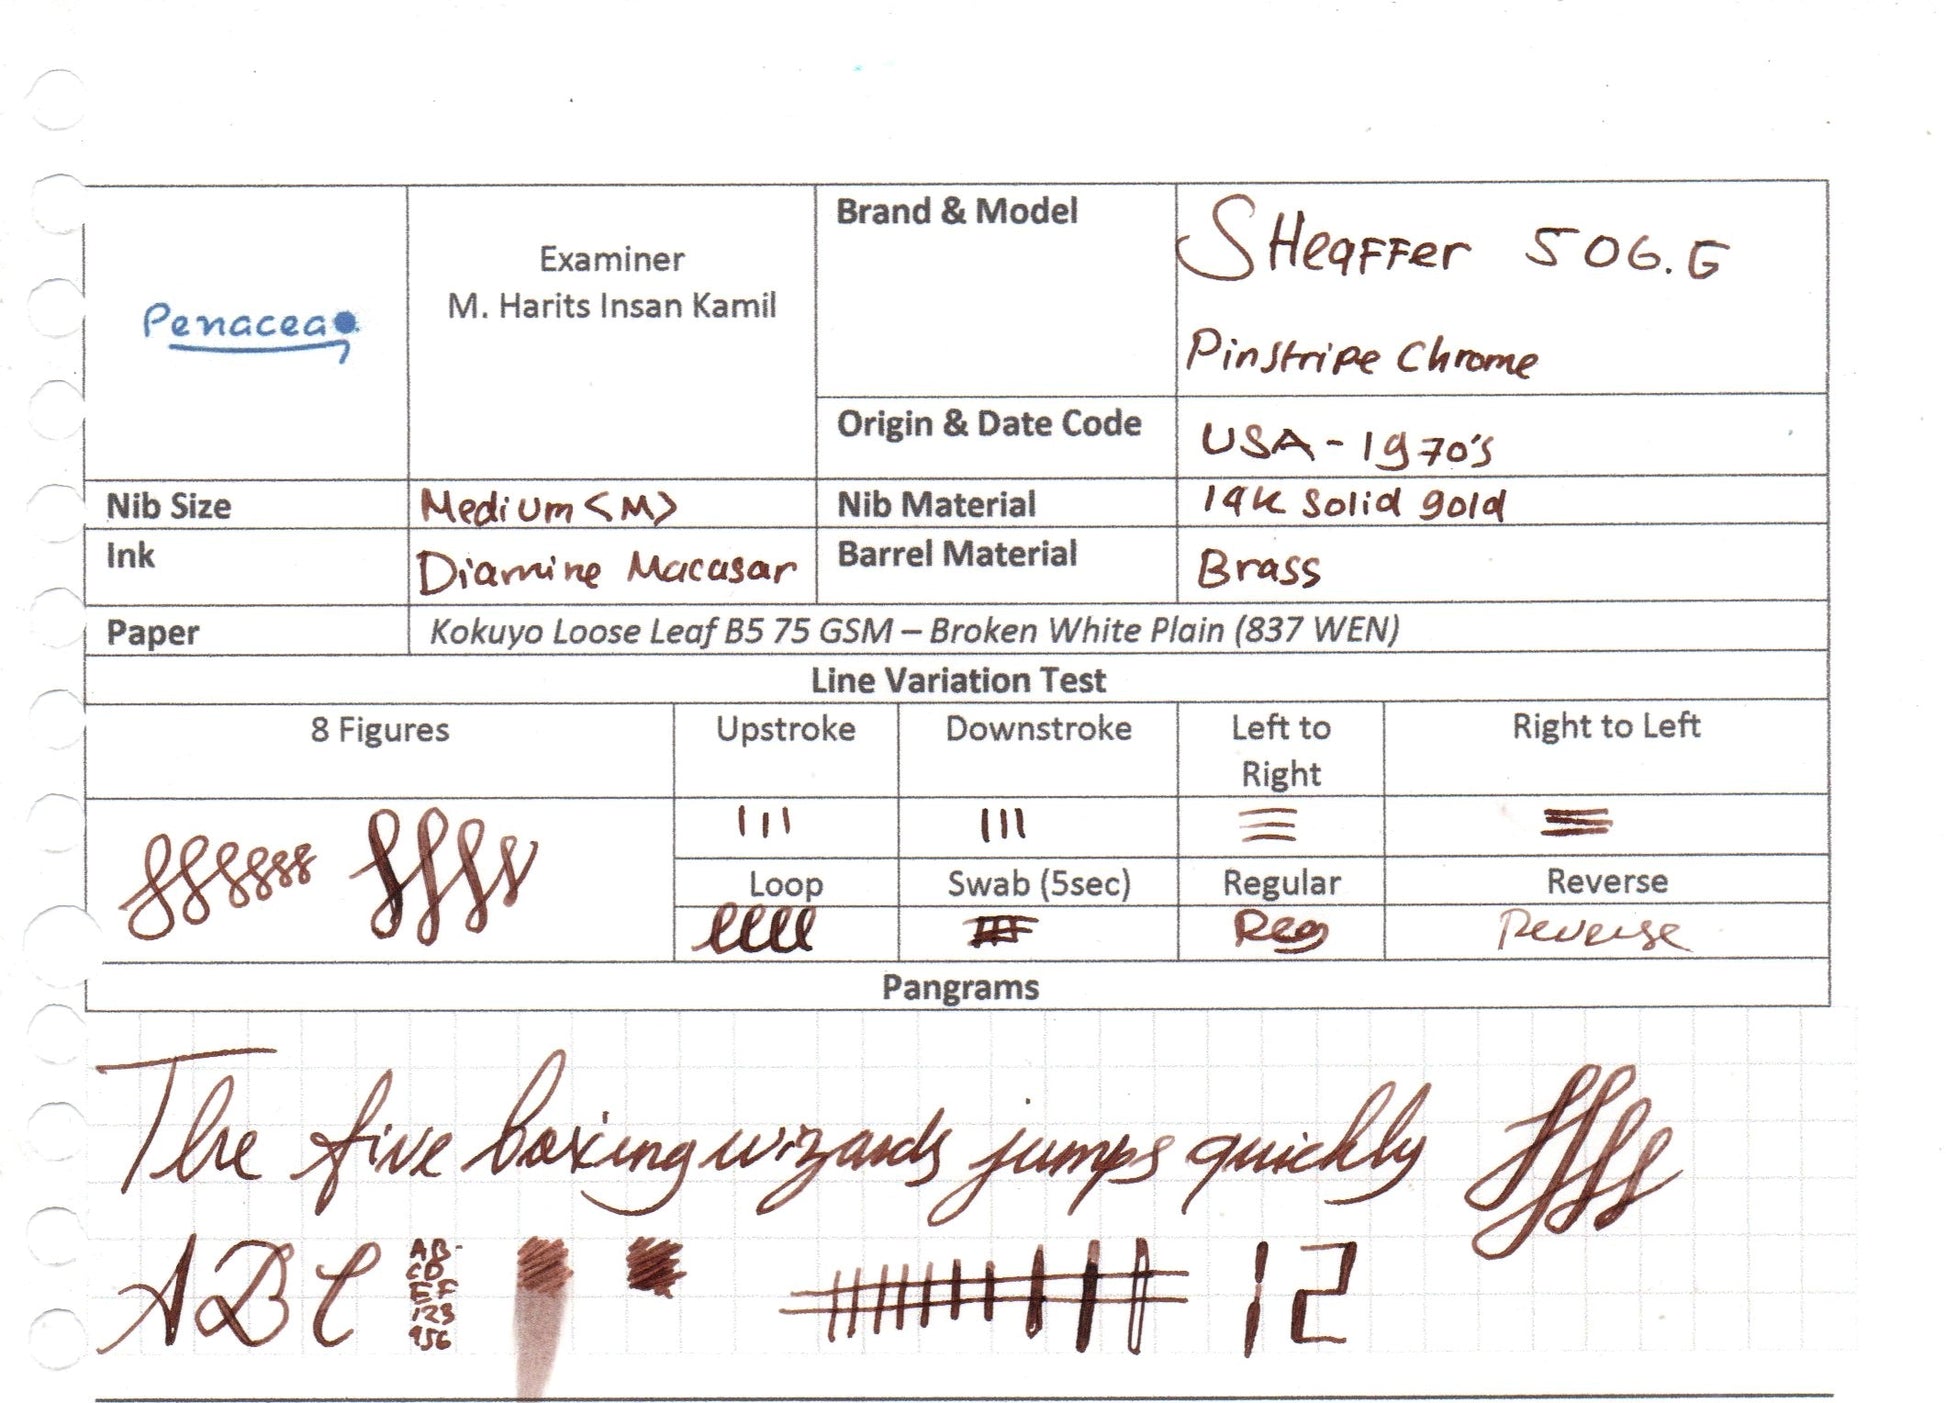 Penacea
Examiner
M. Harits Insan Kamil
Brand & Model
SHeaFFer 506.G
Pinstripe Chrome
Origin & Date Code
USA - 1970's
Nib Size
Medium <M>
Nib Material
14K Solid gold
Ink
Diamine Macasar
Barrel Material
Brass
Paper
Kokuyo Loose Leaf B5 75 GSM – Broken White Plain (837 WEN)
Line Variation Test
8 Figures
Upstroke
Downstroke
Left to
Right
Right to Left
Loop
Swab (5sec)
Regular
Reverse
Reg
Reverse
Pangrams
The five boxing wizards jumps quickly
ABC
AB-
CD
EF
123
456
12